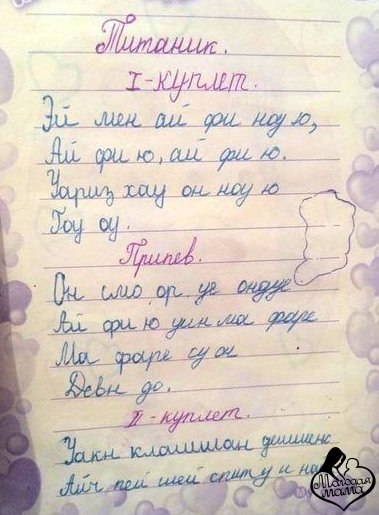 Титаник.
I-куплет.
Эй мен ай фи ноу ю,
Ай фи ю, ай фи ю.
Уариз хау он ноу ю
Гоу оу.
Припев.
Он смо ор уе ондуе
Ай фи ю уин ма фаре
Ма фаре су он
Девн до.
II-куплет.
Уакн клашшан дешшенс
Айч пей шей спиту и на
Молодая мама